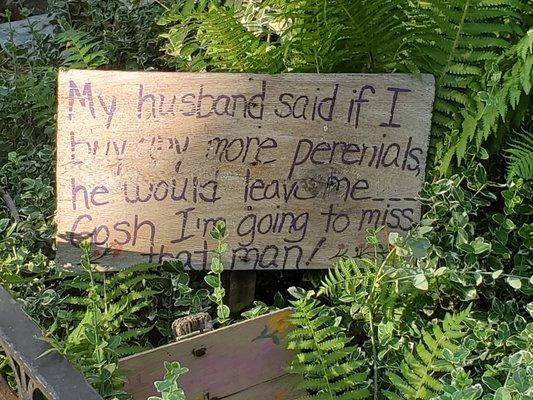 My husband said if I
buy any more perenials,
he would leave me___
Gosh I'm going to miss
that man!